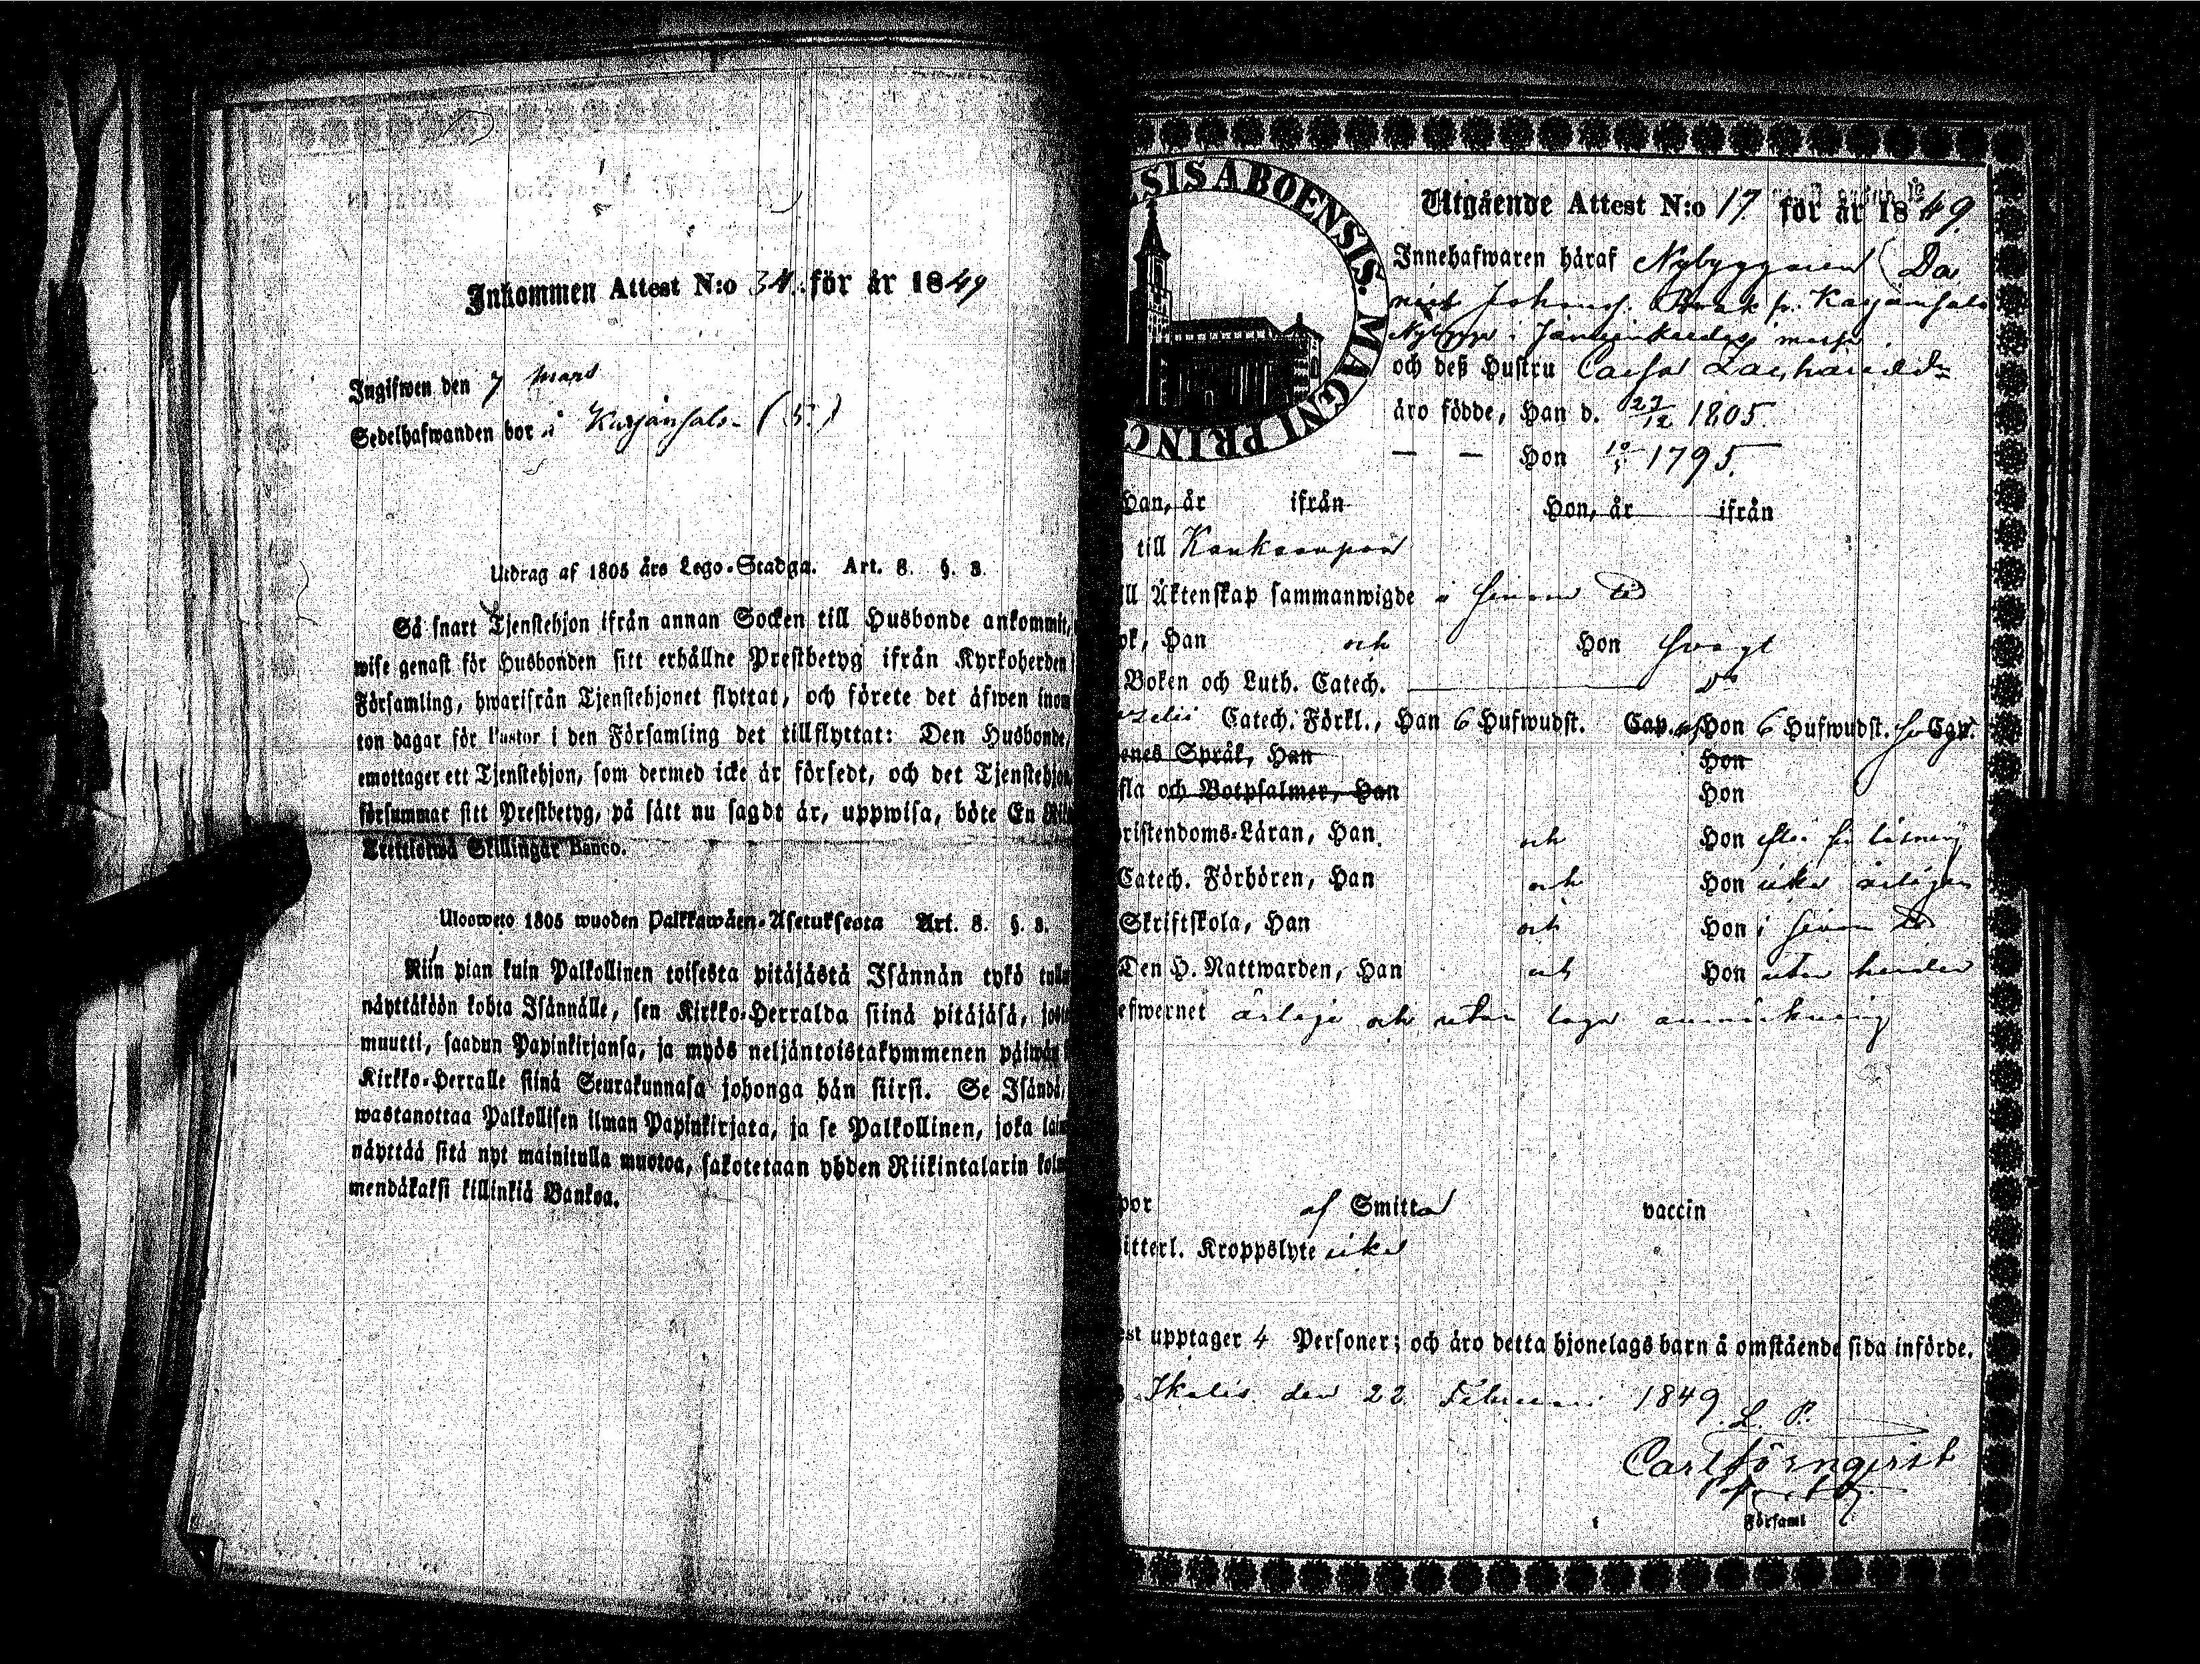 Inkommen Attest N:o 34. för år 1849
Ingifwen den 7 mars
Sedelhafwanden bor å Karjänsalo (5.)
Utdrag af 1805 års Lego-Stadga. Art. 8. §. 3.
Så snart Tjenstehjon ifrån annan Socken till Husbonde ankommit,
wise genast för Husbonden sitt erhållne Prestbetyg ifrån Kyrkoherden
Församling, hwarifrån Tjenstehjonet flyttat, och förete det äfwen inom
ton dagar för Pastor i den Församling det tillflyttat: Den Husbonde,
emottager ett Tjenstehjon, som dermed icke är försedt, och det Tjenstehjon
försummar sitt Prestbetyg, på sätt nu sagdt är, uppwisa, böte En
Trettiotwå Skillingar Banco.
Ulosweto 1805 wuoden Palkkawäen-Asetuksesta Art. 8. §. 3.
Niin pian kuin Palkollinen toisesta pitäjästä Isännän tykö
näyttäköön kohta Isännälle, sen Kirkko-Herralda siinä pitäjäsä,
muutti, saadun Papinkirjansa, ja myös neljäntoistakymmenen päiwän
Kirkko-Herralle siinä Seurakunnasa johonga hän siirsi. Se Isändä,
wastanottaa Palkollisen ilman Papinkirjata, ja se Palkollinen, joka
näyttää sitä nyt mainitulla muotoa, sakotetaan yhden Riikintalarin
mendäkaksi killinkiä Bankoa.
SIS ABOENSIS. MAGNI PRINC
Utgående Attest N:o 17 för år 1849.
Innehafwaren häraf Nybyggaren Da
Johanss. fr. Karjänsalo
Nybygge i
och deß Hustru Caisa Zachariedr
äro födde, Han d. 27/12 1805.
— — Hon 1795.
Han, år ifrån Hon, år ifrån
till Kankaanpää
ll Äktenskap sammanwigde i sinom tid
ok, Han och Hon svagt
Boken och Luth. Catech. — Do
Catech. Förkl., Han 6 Hufwudst. Cap. Hon 6 Hufwudst. Cap.
enes Språk, Han Hon
fla och Botpsalmer, Han Hon
ristendoms-Läran, Han och Hon efter sin läsning
Catech. Förhören, Han och Hon icke
Skriftskola, Han och Hon i sinom tid
Den H. Nattwarden, Han och Hon utan hinder
efwernet ärliga och utan laga anmärkning
por af Smitta vaccin
itterl. Kroppslyte icke
est upptager 4 Personer; och äro detta hjonelags barn å omstående sida införde.
Ikalis den 22 Februari 1849.
L. P.
Carl Törnqvist
Församl